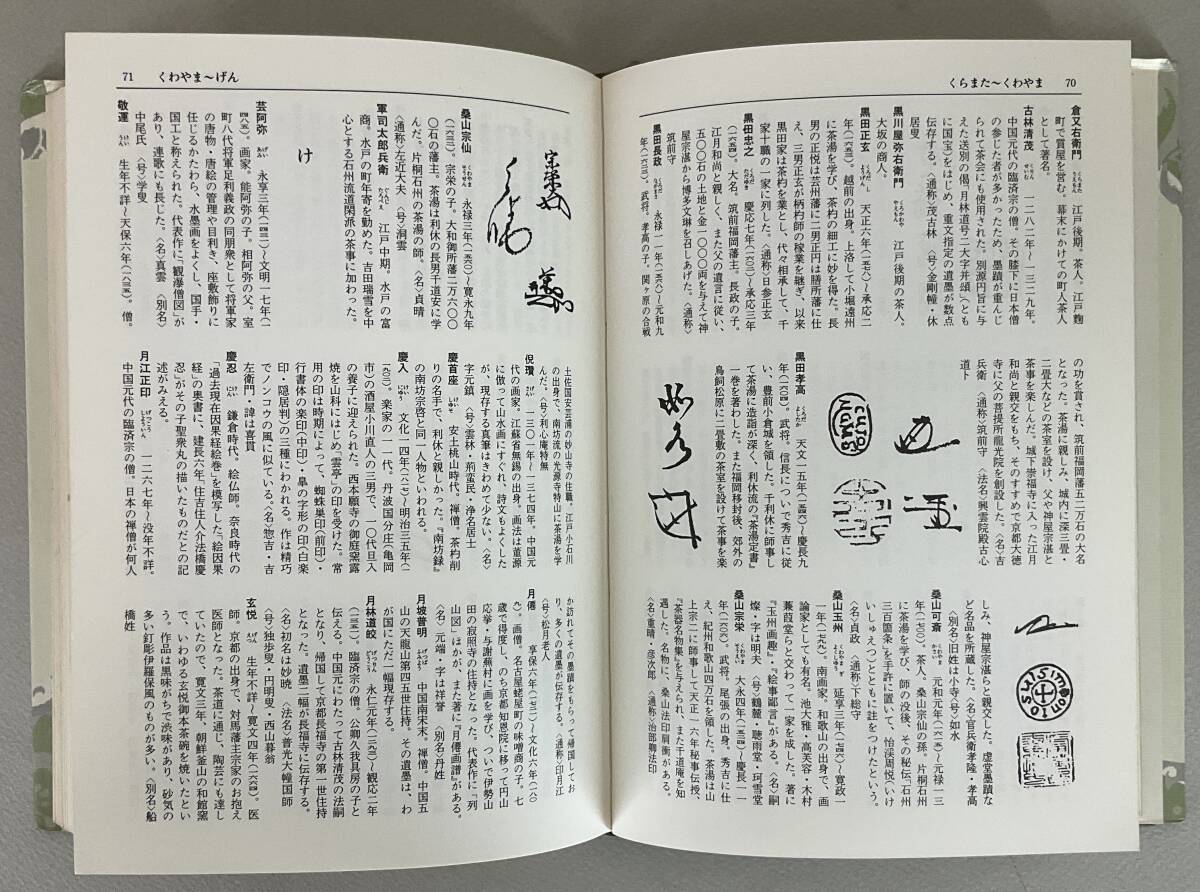 くらまた〜くわやま　70
倉又右衛門　江戸後期。茶人。江戸麴
町で質屋を営む。幕末にかけての町人茶人
として著名。
古林清茂　一二八二年〜一三二九年。
中国元代の臨済宗の僧。その膝下に日本僧
の参じた者が多かったため、墨蹟が重んじ
られて茶会にも使用された。別源円旨に与
えた送別の偈、『月林道号二大字并頌』(とも
に国宝)をはじめ、重文指定の遺墨が数点
伝存する。〈通称〉茂古林〈号〉金剛幢・休
居叟
黒川屋弥右衛門　江戸後期の茶人。
大坂の商人。
黒田正玄　天正六年(一五七八)〜承応二
年(一六五三)。越前の出身。上洛して小堀遠州
に茶湯を学び、茶杓の細工に妙を得た。長
男の正悦は芸州藩に二男正円は膳所藩に仕
え、三男正玄が柄杓師の稼業を継ぎ、以来
黒田家は茶杓を業とし、代々相承して、千
家十職の一家に列した。〈通称〉日参正玄
黒田忠之　慶応七年(一六〇二)〜承応三年
(一六五四)。大名。筑前福岡藩主。長政の子。
江月和尚と親しく、また父の遺言に従い、
五〇〇石の土地と金一〇〇〇両を与えて神
屋宗湛から博多文琳を召しあげた。〈通称〉
筑前守
黒田長政　永禄一一年(一五六八)〜元和九
年(一六二三)。武将。孝高の子。関ヶ原の合戦
の功を賞され、筑前福岡藩五二万石の大名
となった。茶湯に親しみ、城内に深三畳・
二畳大などの茶室を設け、父や神屋宗湛と
茶事を楽しんだ。城下崇福寺に入った江月
和尚と親交をもち、そのすすめで京都大徳
寺に父の菩提所龍光院を創設した。〈名〉吉
兵衛〈通称〉筑前守〈法名〉興雲院殿古心
道卜
黒田孝高　天文一五年(一五四六)〜慶長九
年(一六〇四)。武将。信長についで秀吉に従
い、豊前小倉城を領した。千利休に師事し
て茶湯に造詣が深く、利休流の『茶湯定書』
一巻を著わした。また福岡移封後、郊外の
鳥飼松原に二畳敷の茶室を設けて茶事を楽
しみ、神屋宗湛らと親交した。虚堂墨蹟な
ど名品を所蔵した。〈名〉官兵衛孝隆・孝高
〈別名〉旧姓は小寺〈号〉如水
桑山可斎　元和元年(一六一五)〜元禄一三
年(一七〇〇)。茶人。桑山宗仙の孫。片桐石州
に茶湯を学び、師の没後、その秘伝「石州
三百箇条」を手許に置いて、怡渓周悦(いけ
いしゅえつ)とともに註をつけたという。
〈名〉貞政〈通称〉下総守
桑山玉州　延享三年(一七四六)〜寛政一
一年(一七九九)。南画家。和歌山の出身で、画
論家としても有名。池大雅・高芙蓉・木村
蒹葭堂らと交わって一家を成した。著に
『玉州画趣』・『絵事鄙言』がある。〈名〉嗣
燦・字は明夫〈号〉鶴麓・聴雨堂・珂雪堂
桑山宗栄　大永四年(一五二四)〜慶長一一
年(一六〇六)。武将。尾張の出身。秀吉に仕
え、紀州和歌山四万石を領した。茶湯は山
上宗二に師事して天正一六年秘事伝授、
『茶器名物集』を与えられ、また千道庵を知
遇した。名物に、桑山法印肩衝がある。
〈名〉重晴・彦次郎〈通称〉治部卿法印
71　くわやま〜げん
桑山宗仙　永禄三年(一五六〇)〜寛永九年
(一六三二)。宗栄の子。大和御所藩二万六〇〇
〇石の藩主。茶湯は利休の長男千道安に学
んだ。片桐石州の茶湯の師。〈名〉貞晴
〈通称〉左近大夫〈号〉洞雲
軍司太郎兵衛　江戸中期。水戸の富
商。水戸の町年寄を勤めた。吉田瑞雪を中
心とする石州流道閑派の茶事に加わった。
け
芸阿弥　永享三年(一四三一)〜文明一七年(一
四八五)。画家。能阿弥の子。相阿弥の父。室
町八代将軍足利義政の同朋衆として将軍家
の唐物・唐絵の管理や目利き、座敷飾りに
任じるかたわら、水墨画をよくし、国手・
国工と称えられた。代表作に、「観瀑僧図」が
あり、連歌にも長じた。〈名〉真雲〈別名〉
中尾氏〈号〉学叟
敬運　生年不詳〜天保六年(一八三五)。僧。
土佐国安芸浦の妙山寺の住職。江戸小石川
の出身で、南坊流の光源寺特山に茶湯を学
んだ。〈号〉利心庵特無
倪瓚　一三〇一年〜一三七四年。中国元
代の画家。江蘇省無錫の出身。画法は董源
に倣って山水画にすぐれ、詩文もよくした
が、現存する真筆はきわめて少ない。〈名〉
字元鎮〈号〉雲林・荊蛮民・浄名居士
慶首座　安土桃山時代。禅僧。茶杓削
りの名手で、利休と親しかった。『南坊録』
の南坊宗啓と同一人物といわれる。
慶入　文化一四年(一八一七)〜明治三五年(一
九〇二)。楽家の一一代。丹波国分庄(亀岡
市)の酒屋小川直人の三男で、一〇代旦入
の養子に迎えられた。西本願寺の御庭窯露
焼を山科にはじめ「雲亭」の印を受けた。常
用の印は時期によって、蜘蛛巣印(前印)・
行書体の楽印(中印)・皐の字形の印(白楽
印・隠居判)の三種にわかれる。作は精巧
でノンコウの風に似ている。〈名〉惣吉・吉
左衛門・諱は喜貫
慶忍　鎌倉時代。絵仏師。奈良時代の
「過去現在因果経絵巻」を模写した「絵因果
経」の奥書に、建長六年、「住吉住人介法橋慶
忍」がその子聖衆丸の描いたものだとの記
述がみえる。
月江正印　一二六七年〜没年不詳。
中国元代の臨済宗の僧。日本の禅僧が何人
か訪れてその墨蹟をもらって帰国してお
り、多くの遺墨が伝存する。〈通称〉印月江
〈号〉松月老人
月僊　享保六年(一七二一)〜文化六年(一八〇
九)。画僧。名古屋蛯屋町の味噌商の子。七
歳で得度し、のち京都知恩院に移って円山
応挙・与謝蕪村に画を学び、ついで伊勢山
田の寂照寺の住持となった。代表作に『列
山図』ほかが、また著に『月僊画譜』がある。
〈名〉元瑞・字は祥誉〈別名〉丹姓
月坡普明　中国南宋末。禅僧。中国五
山の天龍山第四五世住持。その遺墨は、わ
が国にただ一幅現存する。
月林道皎　永仁元年(一二九三)〜観応二年
(一三五一)。臨済宗の僧。公卿久我具房の子と
伝える。中国元にわたって古林清茂の法嗣
となり、帰国して京都長福寺の第一世住持
となった。遺墨二幅が長福寺に伝存する。
〈名〉初名は妙暁〈法名〉普光大幢国師
〈号〉独歩叟・円明叟・西山暮翁
玄悦　生年不詳〜寛文四年(一六六四)。医
師。京都の出身で、対馬藩主宗家のお抱え
医師となった。茶道に通じ、陶芸にも達し
ていたので、寛文三年、朝鮮釜山の和館窯
で、いわゆる玄悦御本茶碗を焼いたとい
う。作品は黒味がちで渋味があり、砂気の
多い釘彫伊羅保風のものが多い。〈別名〉船
橋姓